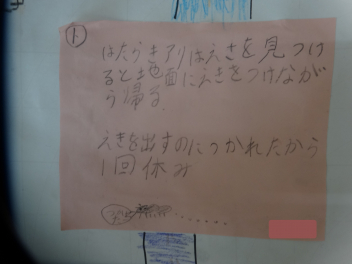 ①
はたらきアリはえさを見つけ
ると地面にえきをつけなが
ら帰る.
えきを出すのにつかれたから
1回休み